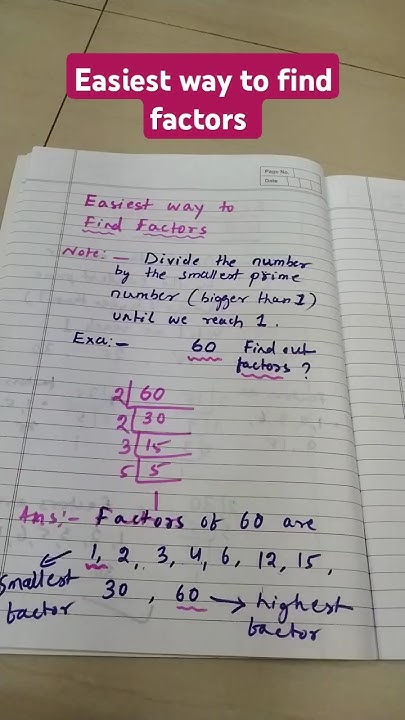 Easiest way to find
factors
Page No.
Date
Easiest way to
Find Factors
Note:- Divide the number
by the smallest prime
number (bigger than 1)
until we reach 1.
Exa:- 60 Find out
factors ?
2 60
2 30
3 15
5 5
1
Ans:- Factors of 60 are
1, 2, 3, 4, 6, 12, 15,
smallest factor
30, 60 → highest
factor